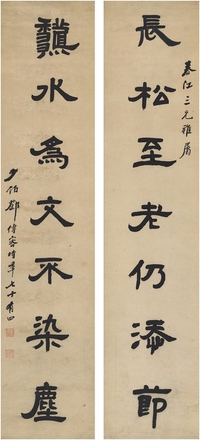 長松至老仍添節
春江三兄雅屬
瀵水為文不染塵
少伯鄧傳密時年七十有四